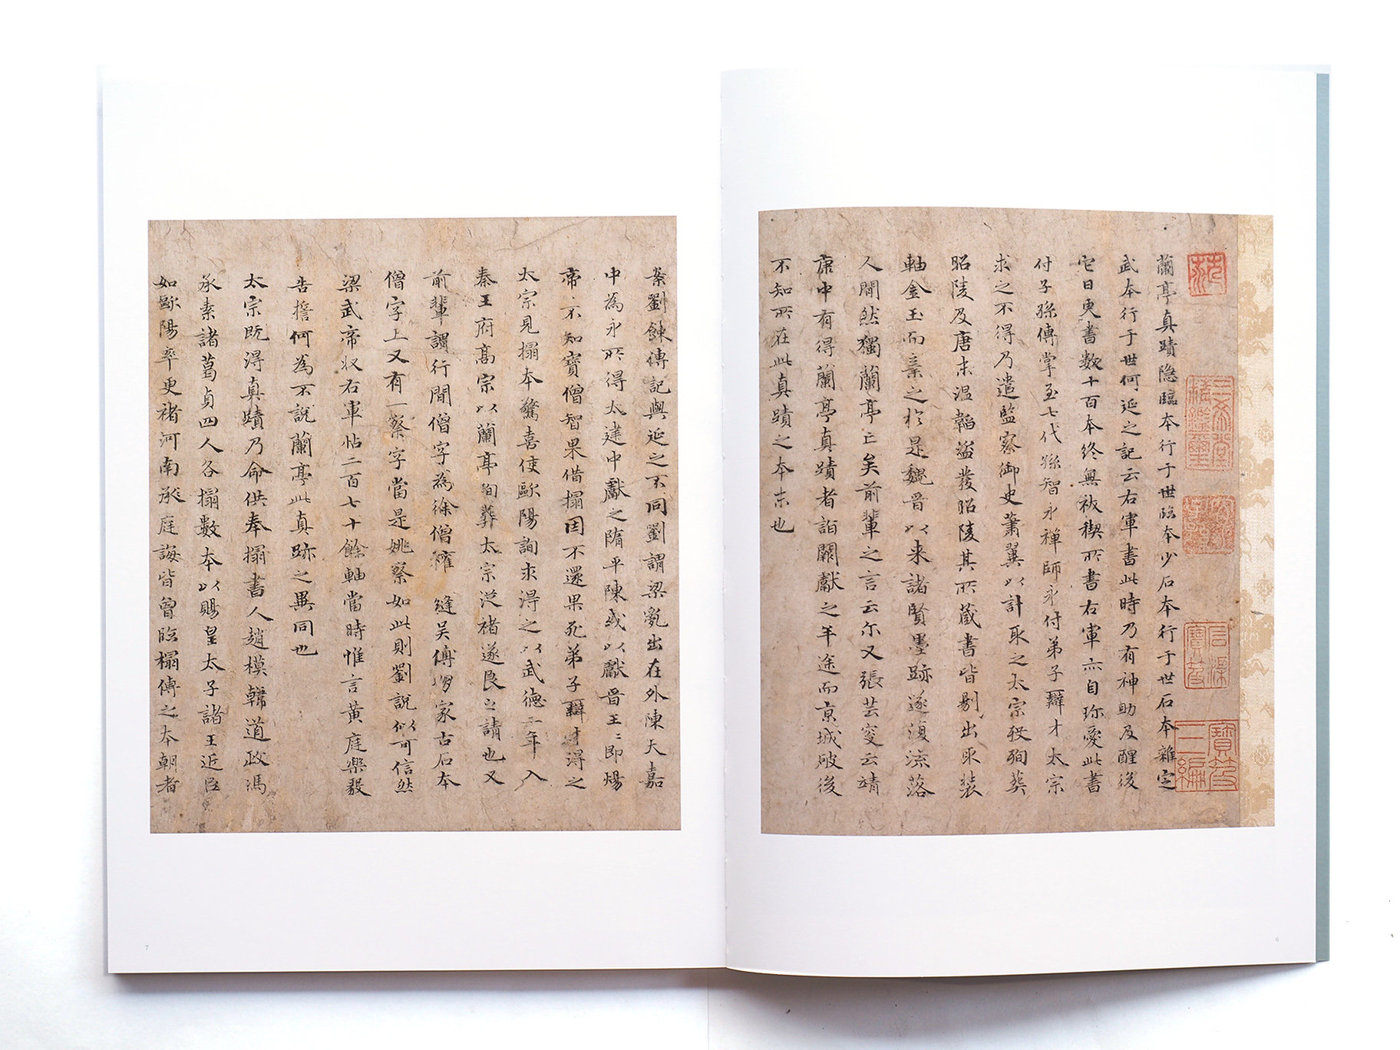 蘭亭真蹟隐臨本行于世臨本少石本行于世石本雜定
武本行于世何延之記云右軍書此時乃有神助及醒後
它日更書數十百本終無祓禊所書右軍亦自珍愛此書
付子孫傳掌至七代孫智永禅師永付弟子辯才太宗
求之不得乃遣監察御史蕭翼以計取之太宗殁殉葬
昭陵及唐末温韜盗發昭陵其所藏書皆剔出取裝
軸金玉而棄之於是魏晋以来諸賢墨跡遂復流落
人間然獨蘭亭亡矣前輩之言云尔又張芸叟云靖
康中有得蘭亭真蹟者詣闕獻之半途而京城破後
不知所在此真蹟之本末也
三希堂精鑑璽
石渠寶笈
寶笈三編
6
案劉餗傳記與延之不同劉謂梁亂出在外陳天嘉
中為永所得太建中獻之隋平陳或以獻晋王王即煬
帝不知寶僧智果借搨因不還果死弟子辯才得之
太宗見搨本驚喜使歐陽詢求得之以武德二年入
秦王府高宗以蘭亭殉葬太宗從褚遂良之請也又
前輩謂行間僧字為徐僧權縫吴傅朋家古石本
僧字上又有一察字當是姚察如此則劉說似可信然
梁武帝収右軍帖二百七十餘軸當時惟言黄庭樂毅
告誓何為不說蘭亭此真跡之異同也
太宗既得真蹟乃命供奉搨書人趙模韓道政馮
承素諸葛貞四人各搨數本以賜皇太子諸王近臣
如歐陽率更褚河南承庭誨皆曾臨搨傳之本朝者
7